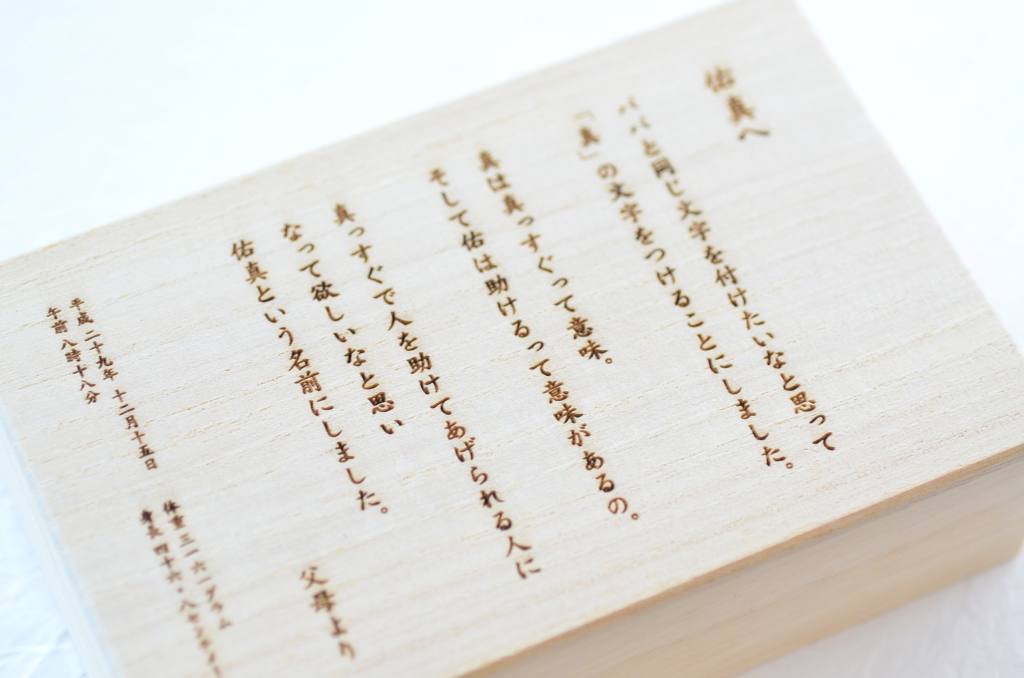 佑真へ
パパと同じ文字を付けたいなと思って
「真」の文字をつけることにしました。
真は真っすぐって意味。
そして佑は助けるって意味があるの。
真っすぐで人を助けてあげられる人に
なって欲しいなと思い
佑真という名前にしました。
父母より
平成二十九年 十二月十五日
午前八時十八分
体重三一六一グラム
身長四十六・八センチ